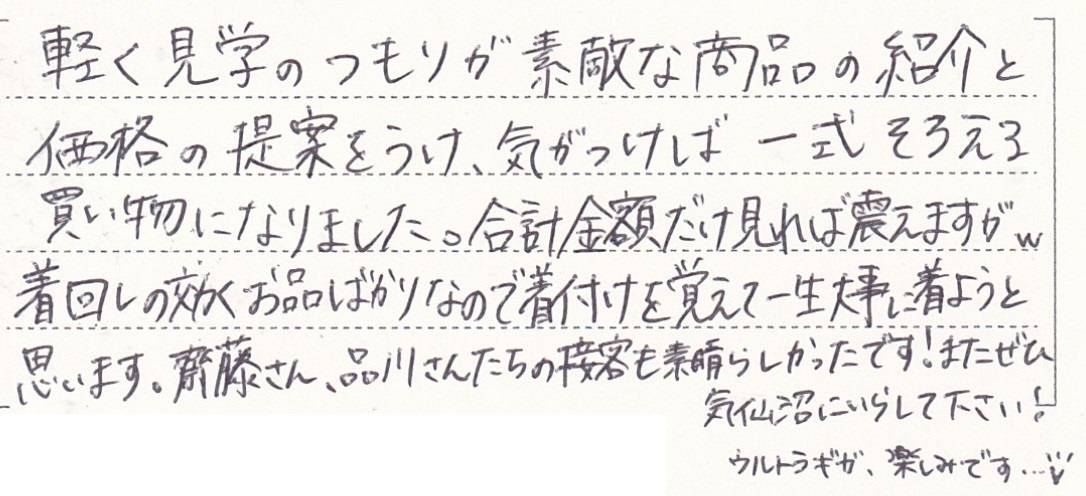 軽く見学のつもりが素敵な商品の紹介と
価格の提案をうけ、気がつけば一式そろえる
買い物になりました。合計金額だけ見れば震えますがw
着回しの効くお品ばかりなので着付けを覚えて一生大事に着ようと
思います。齋藤さん、品川さんたちの接客も素晴らしかったです!またぜひ
気仙沼にいらして下さい!
ウルトラギガ、楽しみです…